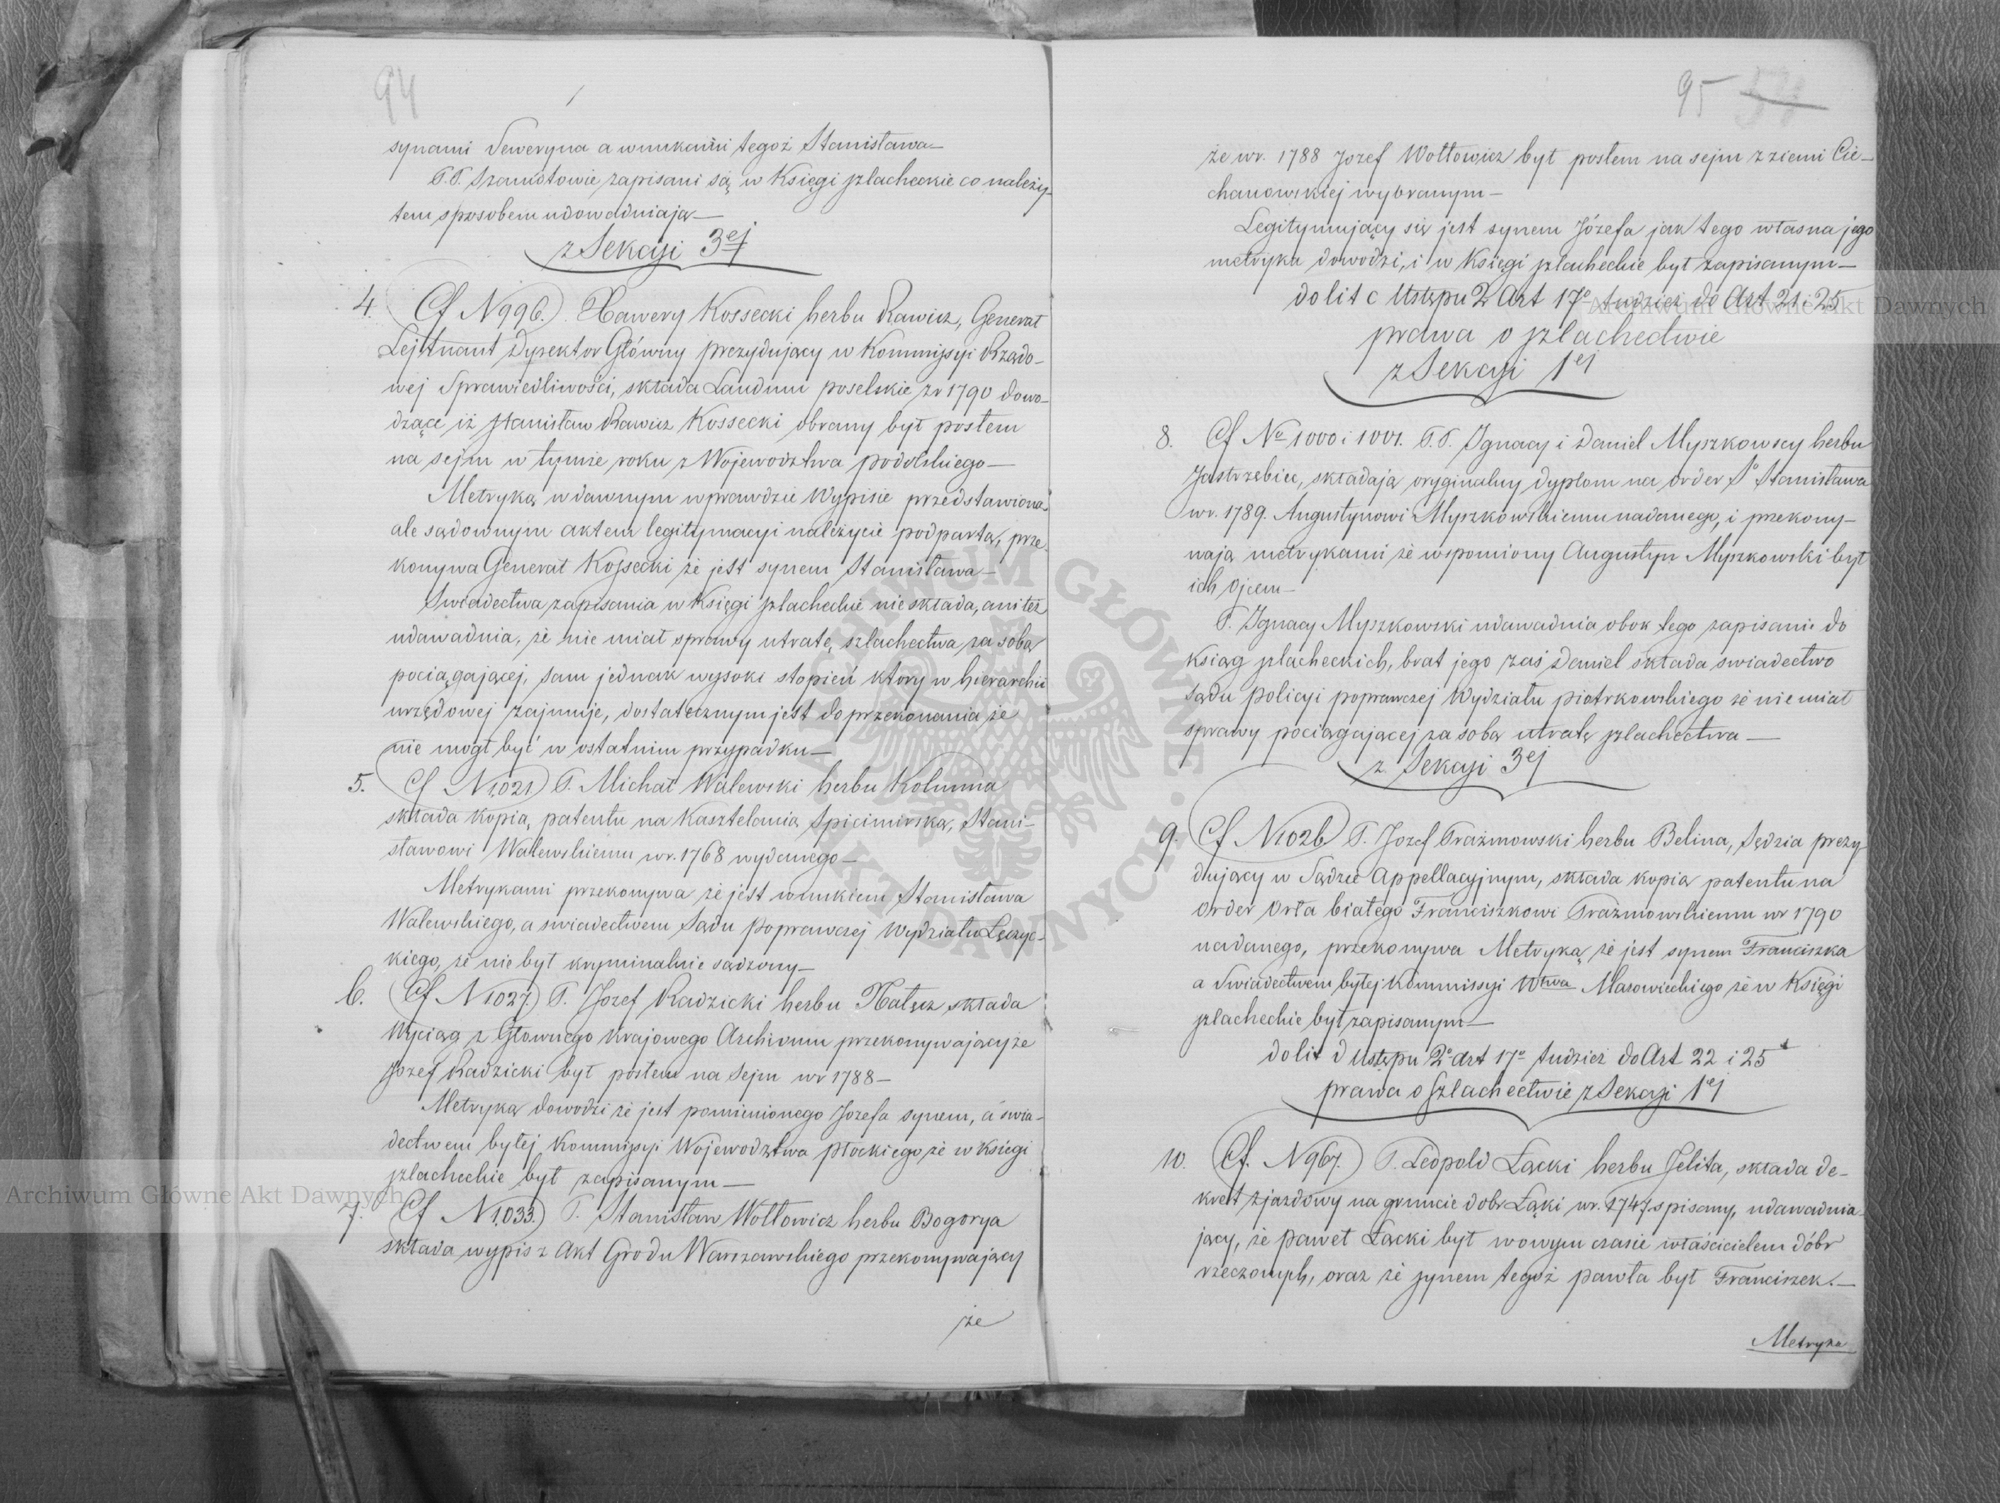 94
synami Seweryna a wnukami tegoż Stanisława—
P.P. Szamotowie zapisani są w Księgi szlacheckie co należy-
tem sposobem udowadniają—
z Sekcyi 3ej
4. Cf N 996. Xawery Kossecki herbu Rawicz, Generał
Lejtnant Dyrektor Główny prezydujący w Kommissyi Rządo-
wej Sprawiedliwości, składa Laudum poselskie zr 1790 dowo-
dzące iż Stanisław Rawicz Kossecki obrany był posłem
na sejm w tymże roku z Województwa podolskiego—
Metryką w dawnym wprawdzie Wypisie przedstawioną
ale sądownym aktem legitymacyi należycie podpartą, prze-
konywa Generał Kossecki że jest synem Stanisława—
Świadectwa zapisania w Księgi szlacheckie nie składa, ani też
udawadnia, że nie miał sprawy utratę szlachectwa za sobą
pociągającej, sam jednak wysoki stopień który w hierarchii
urzędowej zajmuje, dostatecznym jest do przekonania że
nie mógł być w ostatnim przypadku—
5. Cf N 1021 P. Michał Walewski herbu Kolumna
składa kopią patentu na Kasztelanią Spicimirską, Stani-
sławowi Walewskiemu wr. 1768 wydanego—
Metrykami przekonywa że jest wnukiem Stanisława
Walewskiego, a świadectwem Sądu Poprawczej Wydziału Łęczyc-
kiego, że nie był kryminalnie sądzony—
6. Cf N 1027 P. Jozef Radzicki herbu Nałęcz składa
Wyciąg z Głownego Krajowego Archivum przekonywający że
Jozef Radzicki był posłem na Sejm wr 1788—
Metryką dowodzi że jest pomienionego Jozefa synem, a świa-
dectwem byłej Kommissyi Województwa płockiego, że w Księgi
szlacheckie był zapisanym—
7. Cf N 1033. P. Stanisław Wołłowicz herbu Bogorya
składa wypis z Akt Grodu Warszawskiego przekonywający
że
95
że wr. 1788 Jozef Wołłowicz był posłem na sejm z ziemi Cie-
chanowskiej wybranym—
Legitymujący się jest synem Józefa jak tego własna jego
metryka dowodzi, i w Księgi szlacheckie był zapisanym—
do lit c Ustępu 2 Art 17º tudzież do Art 21 i 25
prawa o szlachectwie
z Sekcyi 1ej
8. Cf No 1000 i 1001. P.P. Ignacy i Daniel Myszkowscy herbu
Jastrzębiec, składają oryginalny dyplom na order So Stanisława
wr. 1789. Augustynowi Myszkowskiemu nadanego, i przekony-
wają metrykami że wspomiony Augustyn Myszkowski był
ich Ojcem—
P. Ignacy Myszkowski udawadnia obok tego zapisanie do
Ksiąg szlacheckich, brat jego zaś Daniel składa swiadectwo
Sądu policyi poprawczej Wydziału piotrkowskiego że nie miał
sprawy pociągającej za sobą utratę szlachectwa—
z Sekcyi 3ej
9. Cf N 1026 P. Jozef Prażmowski herbu Belina, Sędzia prezy-
dujący w Sądzie Appellacyjnym, składa kopią patentu na
Order Orła białego Franciszkowi Prażmowskiemu wr 1790
nadanego, przekonywa Metryką że jest synem Franciszka
a Świadectwem byłej Kommissyi Wtwa Mazowieckiego że w Księgi
szlacheckie był zapisanym—
do lit d Ustępu 2º Art 17º tudzież do Art 22 i 25
prawa o Szlachectwie z Sekcyi 1ej
10. Cf. N 967. P. Leopold Łącki herbu Jelita, składa de-
kret zjazdowy na gruncie dobr Łąki wr. 1747 spisany, udawadnia-
jący, że paweł Łącki był w owym czasie właścicielem dóbr
rzeczonych, oraz że synem tegoż pawła był Franciszek.—
Metryka
Archiwum Główne Akt Dawnych
Archiwum Główne Akt Dawnych
ARCHIWUM GŁÓWNE AKT DAWNYCH